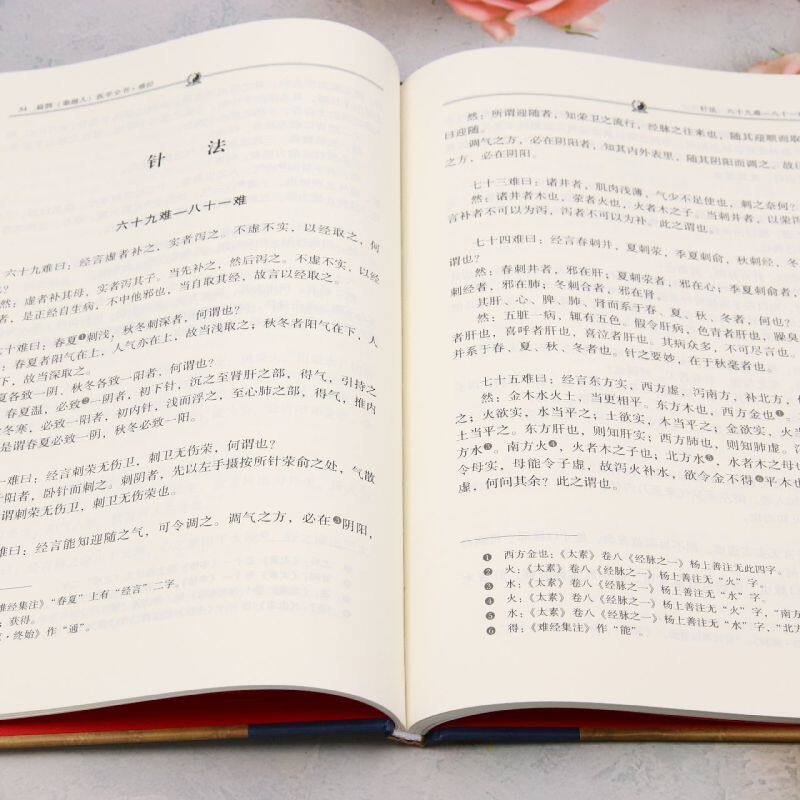 34 扁鹊（秦越人）医学全书·难经
针 法
六十九难—八十一难
六十九难曰：经言虚者补之，实者泻之。不虚不实，以经取之，何
？
然：虚者补其母，实者泻其子。当先补之，然后泻之。不虚不实，以经
者，是正经自生病，不中他邪也，当自取其经，故言以经取之。
十难曰：春夏❶刺浅，秋冬刺深者，何谓也？
：春夏者阳气在上，人气亦在上，故当浅取之；秋冬者阳气在下，人
下，故当深取之。
夏各致一阴、秋冬各致一阳者，何谓也？
春夏温，必致❷一阴者，初下针，沉之至肾肝之部，得气，引持之
冬寒，必致一阳者，初内针，浅而浮之，至心肺之部，得气，推内
是谓春夏必致一阴，秋冬必致一阳。
一难曰：经言刺荣无伤卫，刺卫无伤荣，何谓也？
阳者，卧针而刺之。刺阴者，先以左手摄按所针荣俞之处，气散
谓刺荣无伤卫，刺卫无伤荣也。
难曰：经言能知迎随之气，可令调之。调气之方，必在❸阴阳，
难经集注》“春夏”上有“经言”二字。
：获得。
·终始》作“通”。
针法 六十九难—八十一
然：所谓迎随者，知荣卫之流行，经脉之往来也，随其逆顺而取
曰迎随。
调气之方，必在阴阳者，知其内外表里，随其阴阳而调之，故曰
之方，必在阴阳。
七十三难曰：诸井者，肌肉浅薄，气少不足使也，刺之奈何？
然：诸井者木也，荥者火也，火者木之子。当刺井者，以荥泻
言补者不可以为泻，泻者不可以为补。此之谓也。
七十四难曰：经言春刺井，夏刺荥，季夏刺俞，秋刺经，冬
谓也？
然：春刺井者，邪在肝；夏刺荥者，邪在心；季夏刺俞者，
刺经者，邪在肺；冬刺合者，邪在肾。
其肝、心、脾、肺、肾而系于春、夏、秋、冬者，何也？
然：五脏一病，辄有五色。假令肝病，色青者肝也，臊臭
者肝也，喜呼者肝也，喜泣者肝也。其病众多，不可尽言也。
并系于春、夏、秋、冬者也。针之要妙，在于秋毫者也。
七十五难曰：经言东方实，西方虚，泻南方，补北方，
然：金木水火土，当更相平。东方木也，西方金也❶。
之；火欲实，水当平之；土欲实，木当平之；金欲实，火
土当平之。东方肝也，则知肝实；西方肺也，则知肺虚。
方水❸。南方火❹，火者木之子也；北方水❺，水者木之母也
令母实，母能令子虚，故泻火补水，欲令金不得❻平木也
虚，何问其余？此之谓也。
❶ 西方金也：《太素》卷八《经脉之一》杨上善注无此四字。
❷ 火：《太素》卷八《经脉之一》杨上善注无“火”字。
❸ 水：《太素》卷八《经脉之一》杨上善注无“水”字。
❹ 火：《太素》卷八《经脉之一》杨上善注无“火”字，“南方
❺ 水：《太素》卷八《经脉之一》杨上善注无“水”字，“北方
❻ 得：《难经集注》作“能”。